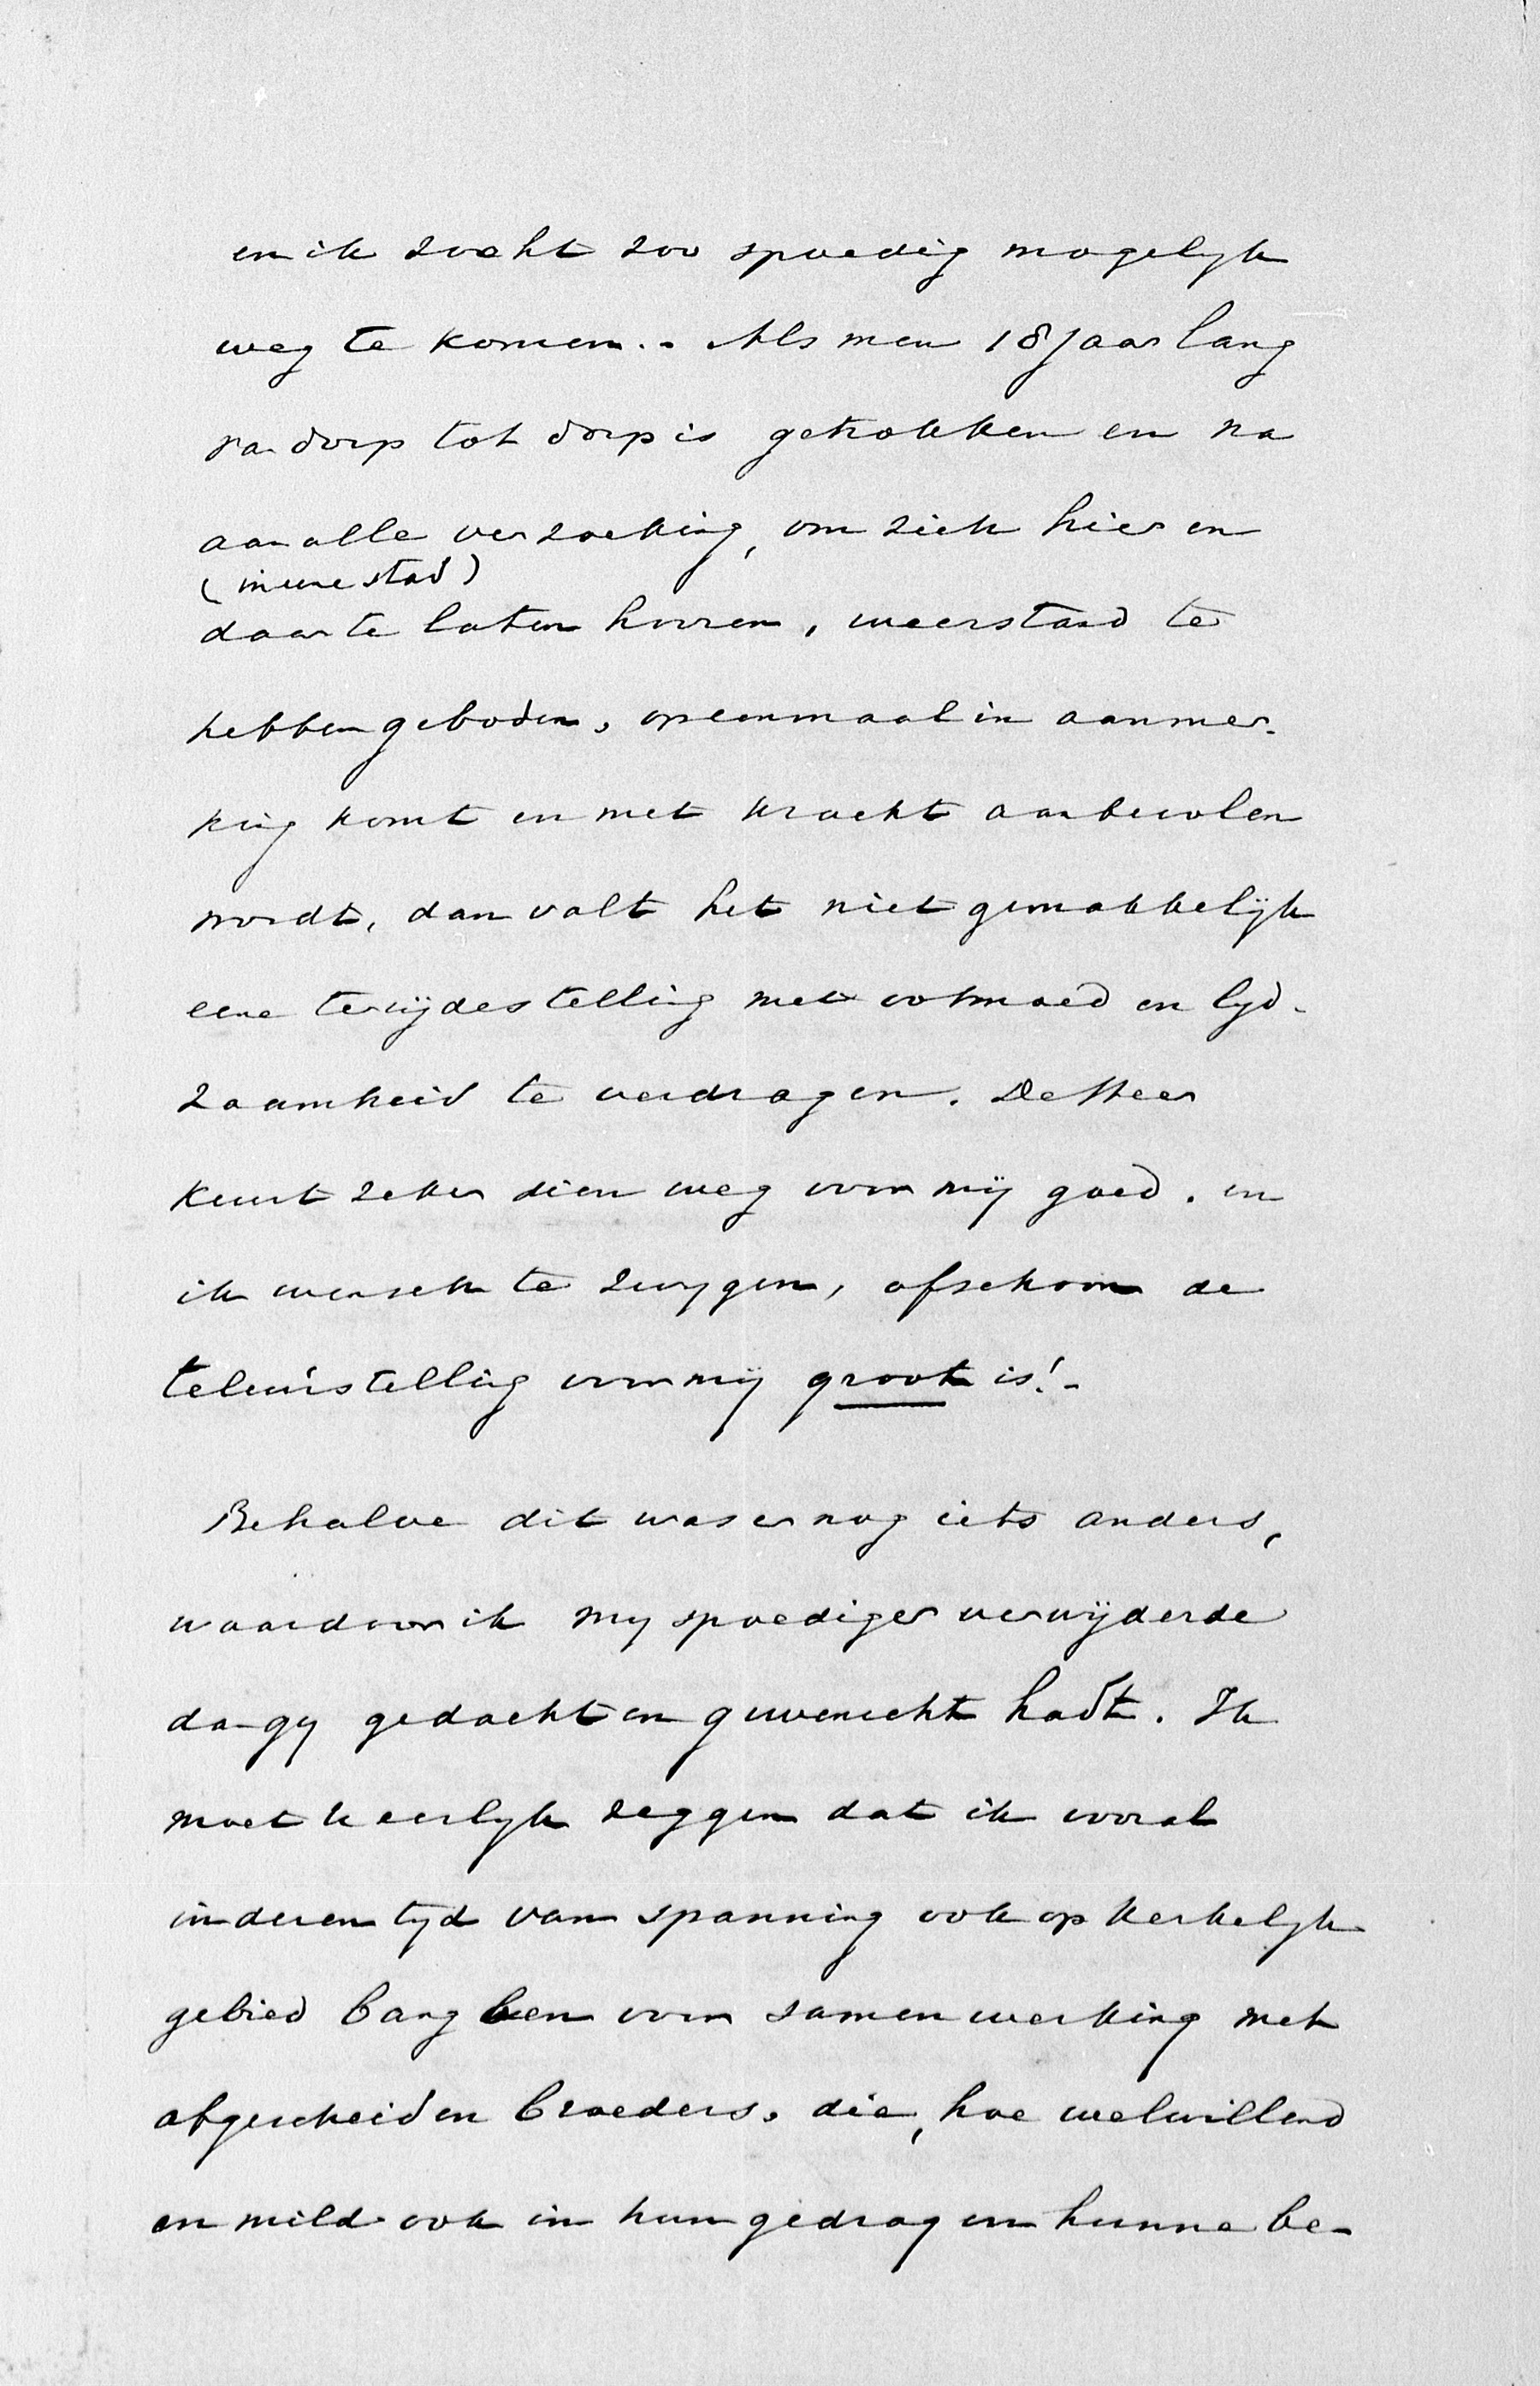 en ik zocht zoo spoedig mogelyk
weg te komen. - Als men 18 jaar lang
van dorp tot dorp is getrokken en na
aan alle verzoeking, om zich hier en
(in eene stad)
daar te laten hooren, weerstand te
hebben geboden, op eenmaal in aanmer-
king komt en met kracht aanbevolen
wordt, dan valt het niet gemakkelijk
eene terzijdestelling met ootmoed en lyd-
zaamheid te verdragen. De Heer
keurt zeker dien weg voor mij goed. en
ik wensch te zwygen, ofschoon de
teleurstelling voor mij groot is! -
Behalve dit was er nog iets anders,
waardoor ik my spoediger verwijderde
dan gy gedacht en gewenscht hadt. Ik
moet U eerlyk zeggen dat ik vooral
in dezen tyd van spanning ook op kerkelyk
gebied bang ben voor samenwerking met
afgescheiden broeders, die, hoe welwillend
en mild ook in hun gedrag en hunne be-